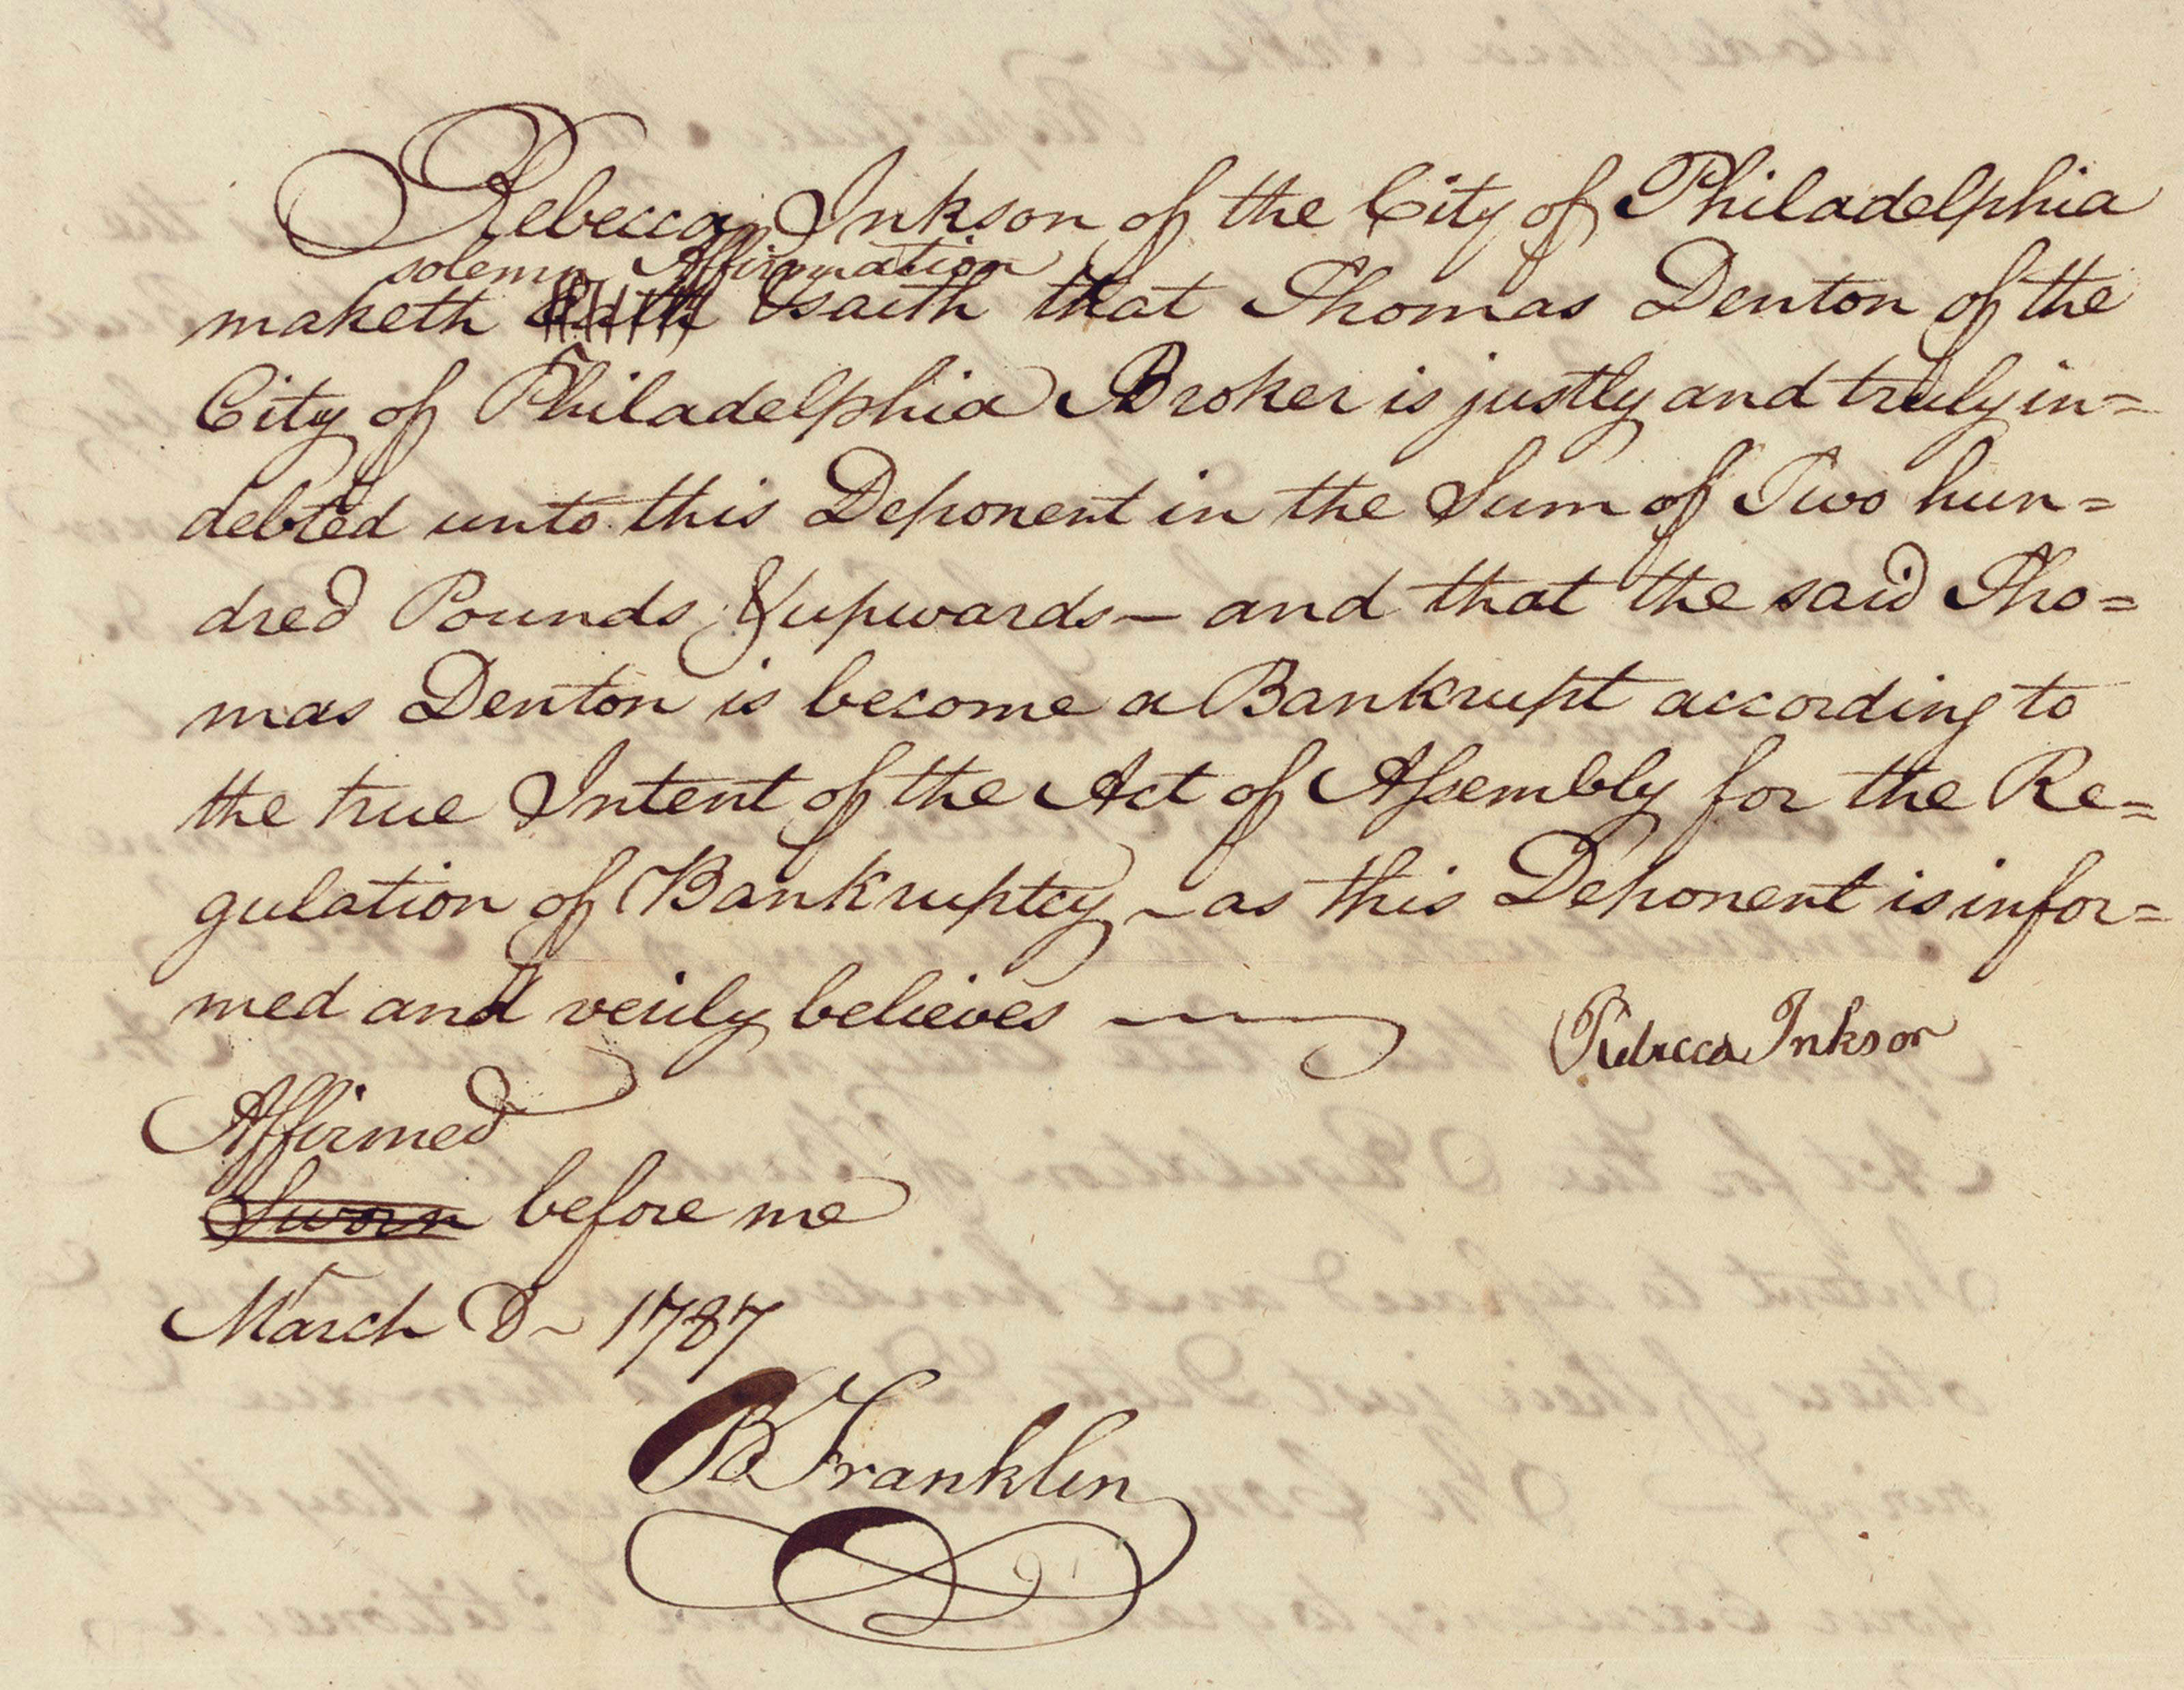 Rebecca Inkson of the City of Philadelphia
solemn Affirmation
maketh Oath & saith that Thomas Denton of the
City of Philadelphia Broker is justly and truly in=
debted unto this Deponent in the Sum of Two hun=
dred Pounds & upwards — and that the said Tho=
mas Denton is become a Bankrupt according to
the true Intent of the Act of Assembly for the Re=
gulation of Bankruptcy — as this Deponent is infor=
med and verily believes
Rebecca Inkson
Affirmed
Sworn before me
March 8 1787
B Franklin